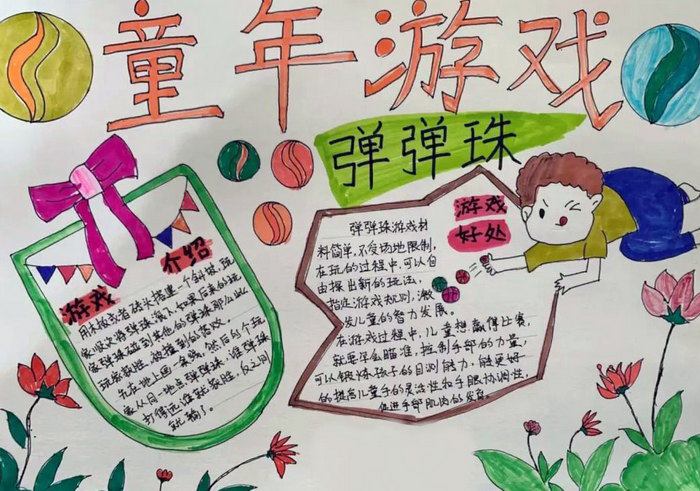 童年游戏
弹弹珠
游戏
介绍
用木板或者砖头搭建一个斜坡,玩
家逐次将弹珠滚下,如果后来的玩
家弹珠碰到其他的弹珠那么此
玩家获胜,被撞到的落败
先在地上画一条线,然后各个玩
家从同一地点弹弹珠,谁弹珠
打得远谁就获胜,反之则
就输了。
游戏
好处
弹弹珠游戏材
料简单,不受场地限制,
在玩的过程中,可以自
由探出新的玩法,
指定游戏规则,激
发儿童的智力发展。
在游戏过程中,儿童想赢得比赛,
就要学会瞄准,控制手部的力量,
可以锻炼孩子的目测能力,能更好
的提高儿童手的灵活性和手眼协调性,
促进手部肌肉的发育。